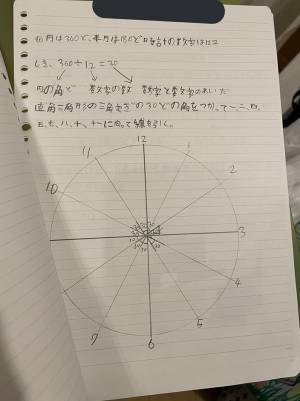 は360ど、半円は180ど 計の数字は12コ
しき、360÷12=30
円の角ど 数字の数 数字と数字のあいだ
直角三角形の三角きの30どの角をつかって一、二、四、
五、七、八、十、十一に向って線を引く。
12
11 1
10 2
3
4
7 5
6